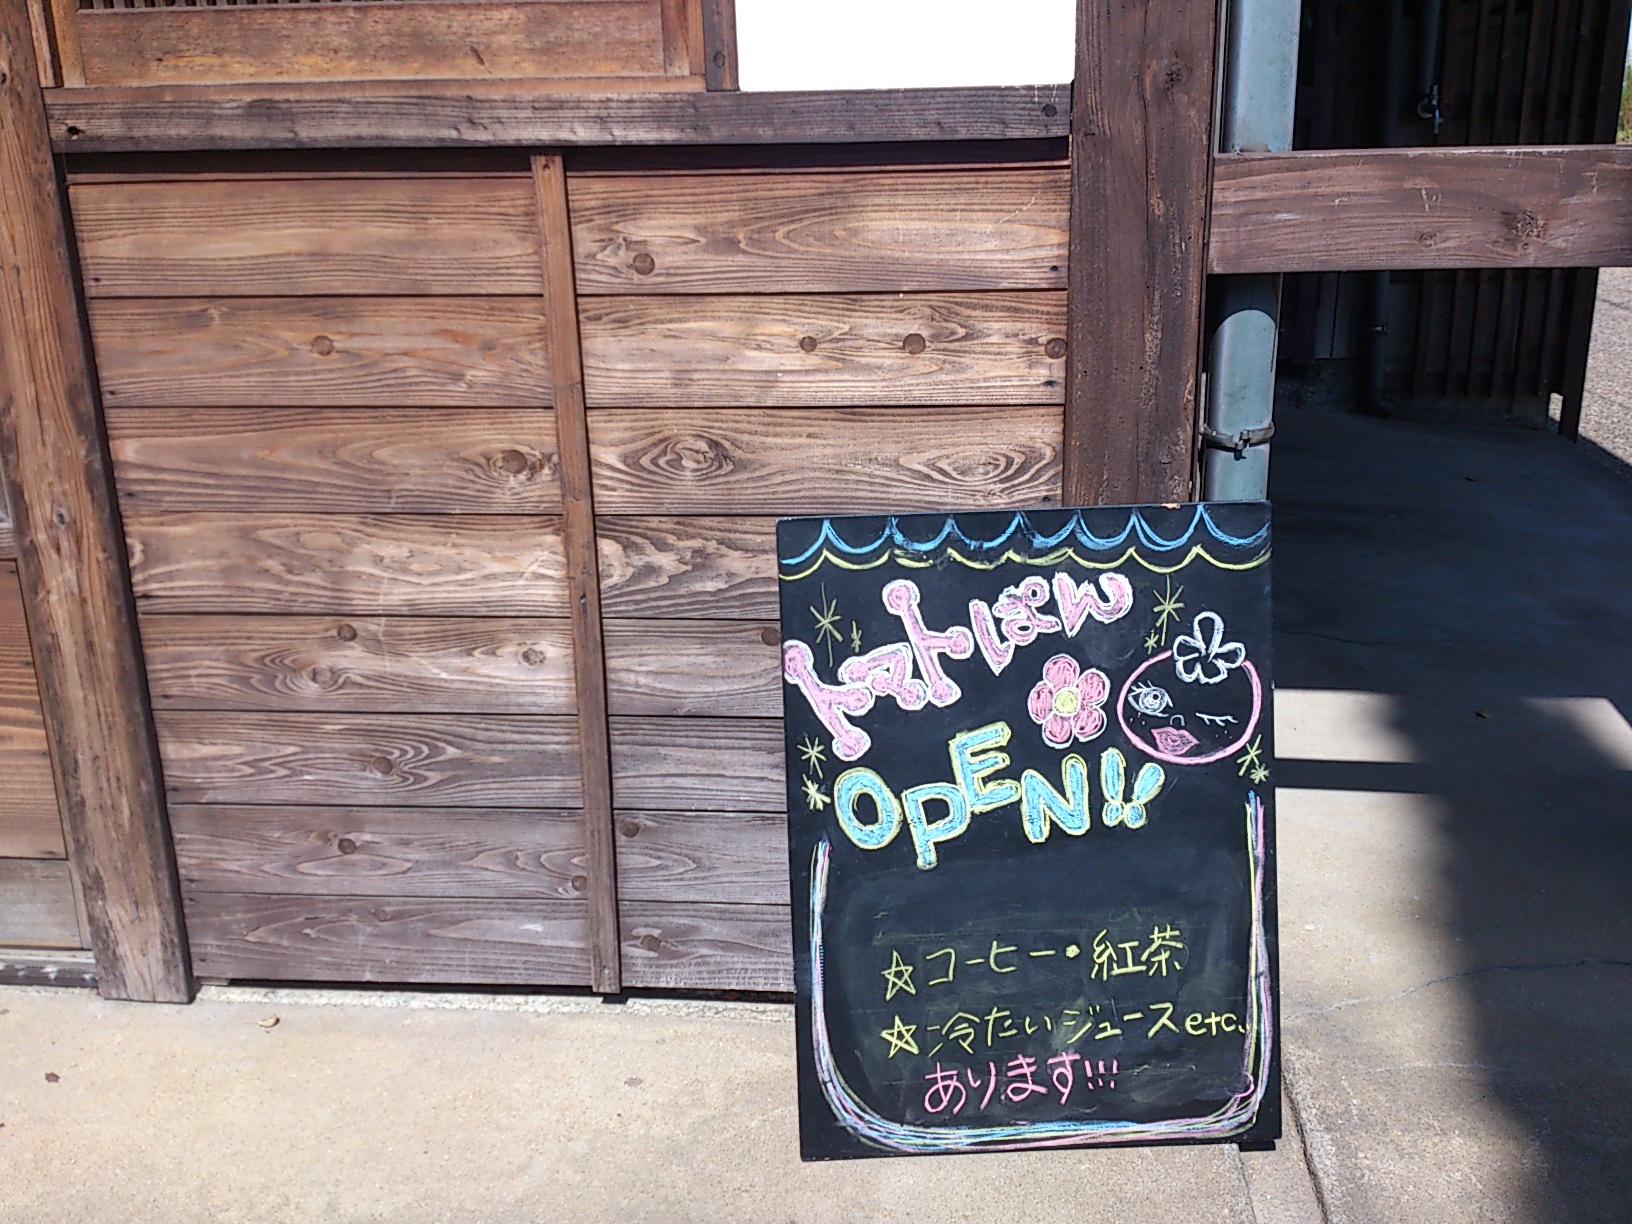 トマトぽん
OPEN!!
☆コーヒー・紅茶
☆冷たいジュースetc.
あります!!!